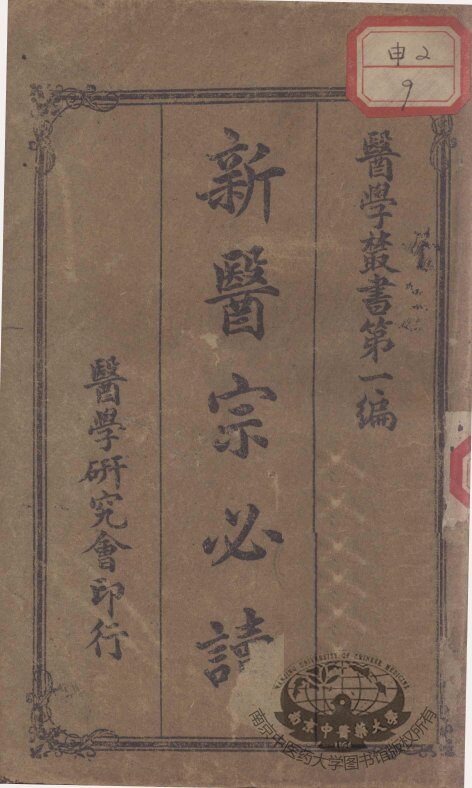 申2
9
醫學叢書第一編
新醫宗必讀
醫學研究會印行
NANJING UNIVERSITY OF CHINESE MEDICINE
南京中醫藥大學
1954
南京中医药大学图书馆版权所有